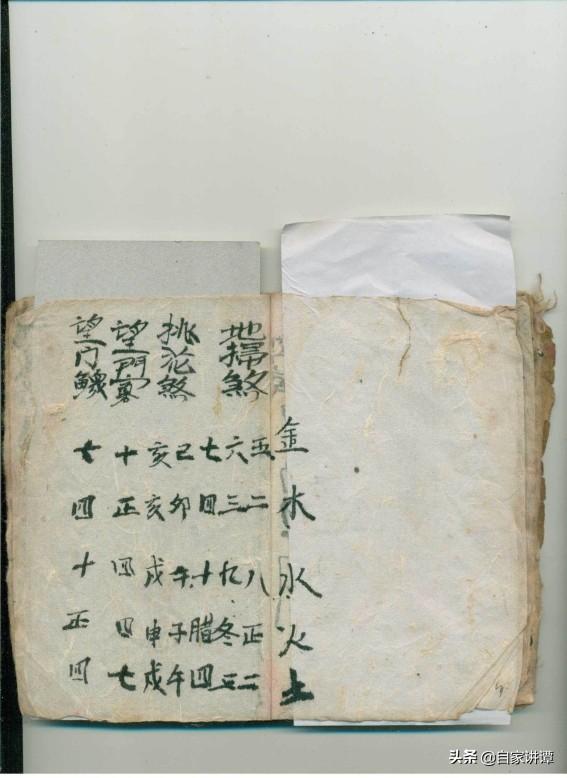 金木水火土
地掃煞
五二八正二
六三九冬三
七四十腊四
挑花煞
巳卯午子午
亥亥戌申戌
望門寡
十正四四七
望门鰥
七四十正四
头条 @自家讲谭